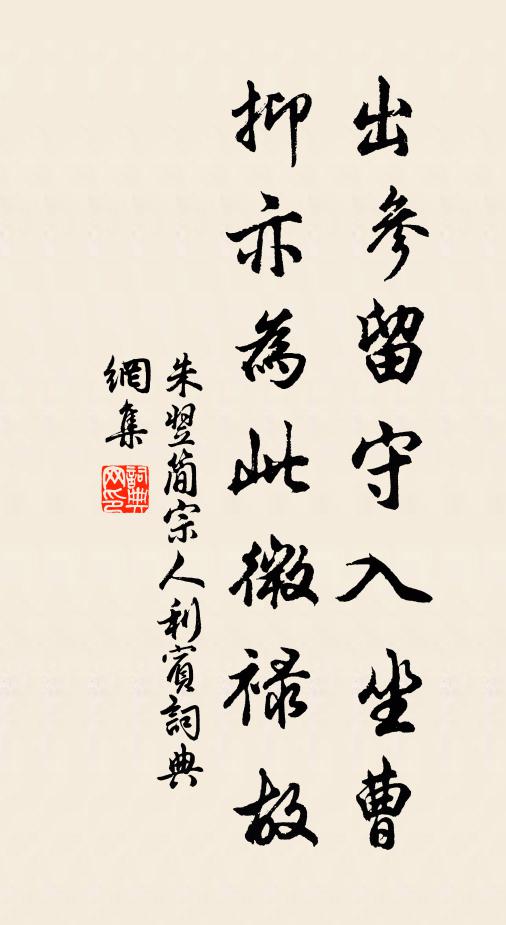 出參留守入坐曹
抑亦為此微祿故
朱翌簡宗人利賓詞典
網集
詞典網印